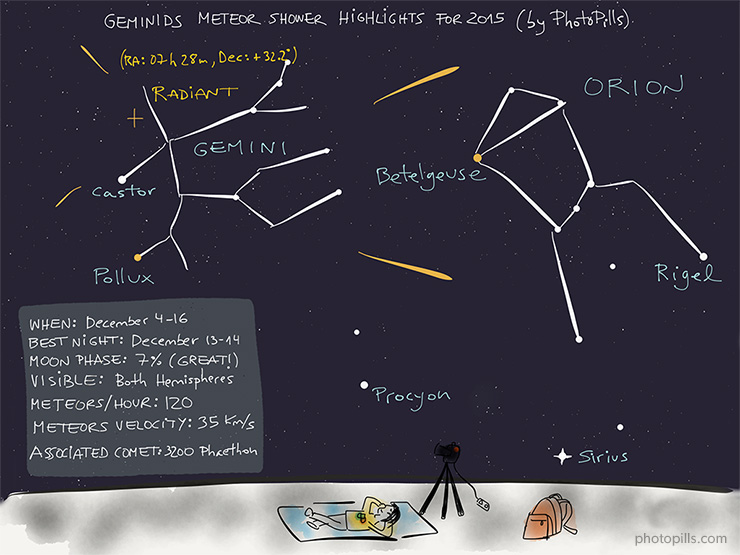 GEMINIDS METEOR SHOWER HIGHLIGHTS FOR 2015 (by PhotoPills)
(RA: 07h 28m, Dec: +32.2°)
RADIANT
ORION
GEMINI
Castor
Betelgeuse
Pollux
Rigel
WHEN: December 4-16
BEST NIGHT: December 13-14
MOON PHASE: 7% (GREAT!)
VISIBLE: Both Hemispheres
METEORS/HOUR: 120
METEORS VELOCITY: 35 Km/s
ASSOCIATED COMET: 3200 Phaethon
Procyon
Sirius
photopills.com